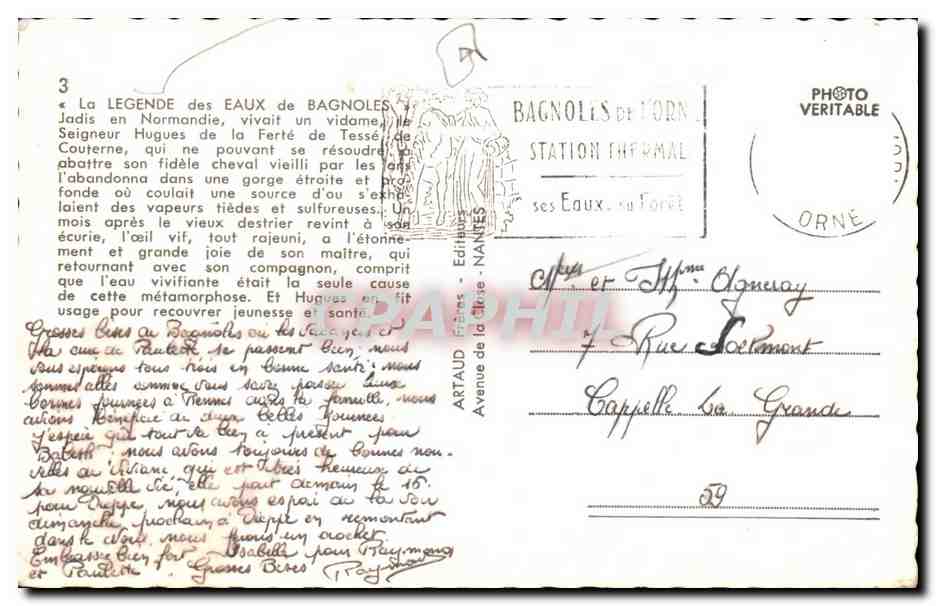 3
« La LEGENDE des EAUX de BAGNOLES »
Jadis en Normandie, vivait un vidame, le
Seigneur Hugues de la Ferté de Tessé de
Couterne, qui ne pouvant se résoudre à
abattre son fidèle cheval vieilli par les ans
l'abandonna dans une gorge étroite et pro-
fonde où coulait une source d'ou s'exha-
laient des vapeurs tièdes et sulfureuses. Un
mois après le vieux destrier revint à son
écurie, l'œil vif, tout rajeuni, a l'étonne-
ment et grande joie de son maître, qui
retournant avec son compagnon, comprit
que l'eau vivifiante était la seule cause
de cette métamorphose. Et Hugues en fit
usage pour recouvrer jeunesse et santé.
Grosses bises de Bagnoles où les vacances et
la cure de Paulette se passent bien, nous
vous espérons tous trois en bonne santé. nous
sommes allés comme vous savez passer deux
bonnes journées à Vienne dans la famille, nous
avions bénéficié de deux belles journées.
J'espère que tout va bien à présent pour
Babeth. nous avons toujours de bonnes nou-
velles de Viviane, qui est très heureuse de
sa nouvelle vie, elle part demain le 15
pour Dieppe, nous avons espoir de la voir
dimanche prochain à Dieppe en remontant
dans le Nord, nous ferons un crochet.
Embrasse bien fort Isabelle pour Raymond
et Paulette. Grosses Bises Raymond
ARTAUD Frères - Editeurs
Avenue de la Close - NANTES
BAGNOLES DE L'ORNE
STATION THERMALE
ses Eaux. sa Forêt
ORNE
PHOTO
VERITABLE
et Mme Agneray
7 Rue
Cappelle La Grande
59
DELCAMPHIL